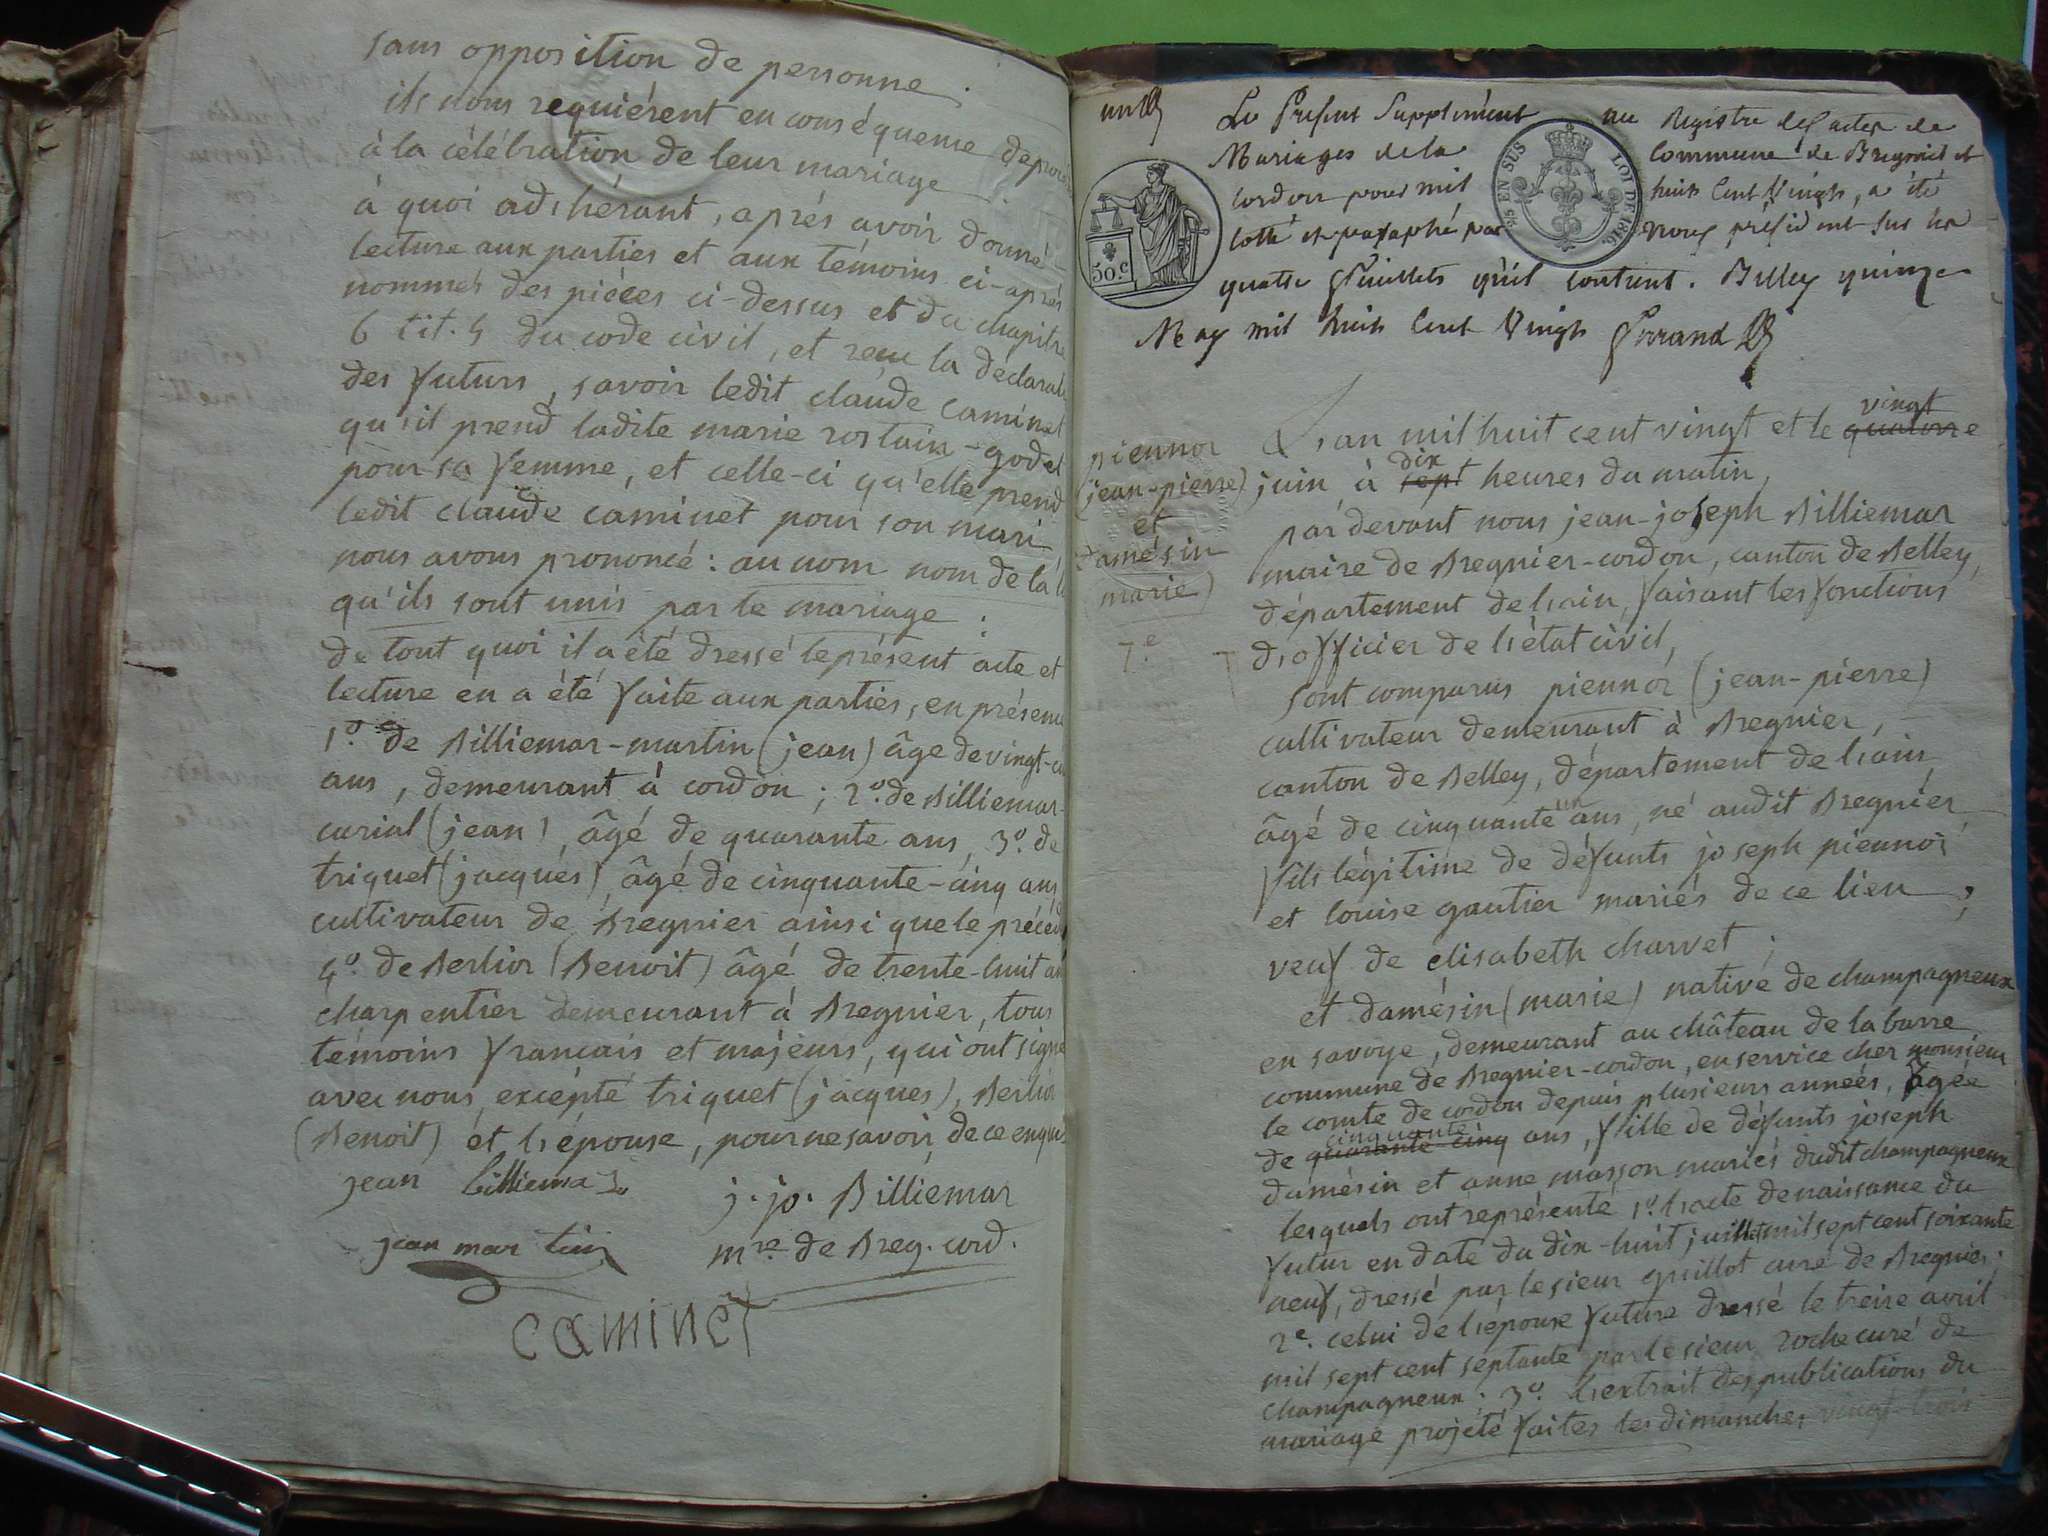 sans opposition de personne.
ils nous requiérent en conséquence de proc
à la célébration de leur mariage
à quoi adshérant, aprés avoir donné
lecture aux parties et aux témoins ci-aprés
nommés des piéces ci-dessus et du chapitre
6 tit. 5 du code civil, et reçu la déclarat
des futurs, savoir ledit claude caminet
qu'il prend ladite marie rostain-godet
pour sa femme, et celle-ci qu'elle prend
ledit claude caminet pour son mari
nous avons prononcé: au nom nom de la l
qu'ils sont unis par le mariage.
de tout quoi il a été dressé le présent acte et
lecture en a été faite aux parties, en présence
1º. de Billiemar-martin (jean) âge de vingt-
ans, demeurant à cordon; 2º. de Billiemar-
curial (jean), âgé de quarante ans, 3º. de
triquet (jacques) âgé de cinquante-cinq ans
cultivateur de Bregnier ainsi que le précéd
4º. de Berlior (Benoit) âgé de trente-huit an
charpentier demeurant à Bregnier, tous
témoins francais et majeurs, qui ont signé
avec nous, excépté triquet (jacques), Berlior
(Benoit) et l'épouse, pour ne savoir, de ce enquis
jean billiemaz j. jo. Billiemar
jean martin mre de Breg. cord.
caminet
un
Le Présent Supplément au Registre des actes de
Mariages de la Commune de Bregnier et
Cordon pour mil huit Cent Vingt, a été
cotté et paraphé par Nous président sur les
quatre feuillets qu'il contient. Belley quinze
May mil huit Cent Vingt Ferrand
50.c
25 EN SUS LOI DE 1816
piennoz
(jean-pierre)
et
damésin
marie)
7.e
L'an mil huit cent vingt et le quatorze vingt
juin à sept dix heures du matin,
par devant nous jean-joseph Billiemar
maire de Bregnier-cordon, canton de Belley,
département de l'ain, faisant les fonctions
d'officier de l'état civil,
sont comparus piennoz (jean-pierre)
cultivateur demeurant à Bregnier,
canton de Belley, département de l'ain,
âgé de cinquante un ans, né audit Bregnier,
fils légitime de défunts joseph piennoz
et louise gautier mariés de ce lieu;
veuf de elisabeth charvet;
et damésin (marie) native de champagneux
en savoye, demeurant au château de la barre
commune de Bregnier-cordon, en service cher monsieur
le comte de cordon depuis plusieurs années, âgée
de quarante cinq cinquante ans, fille de défunts joseph
damésin et anne masson mariés dudit champagneux
lesquels ont représenté 1º. l'acte de naissance du
futur en date du dix-huit juillet mil sept cent soixante
neuf, dressé par le sieur guillot curé de Bregnier.
2e. celui de l'épouse future dressé le treize avril
mil sept cent septante par le sieur roche curé de
champagneux; 3º. l'extrait des publications du
mariage projété faites les dimanches vingt-trois